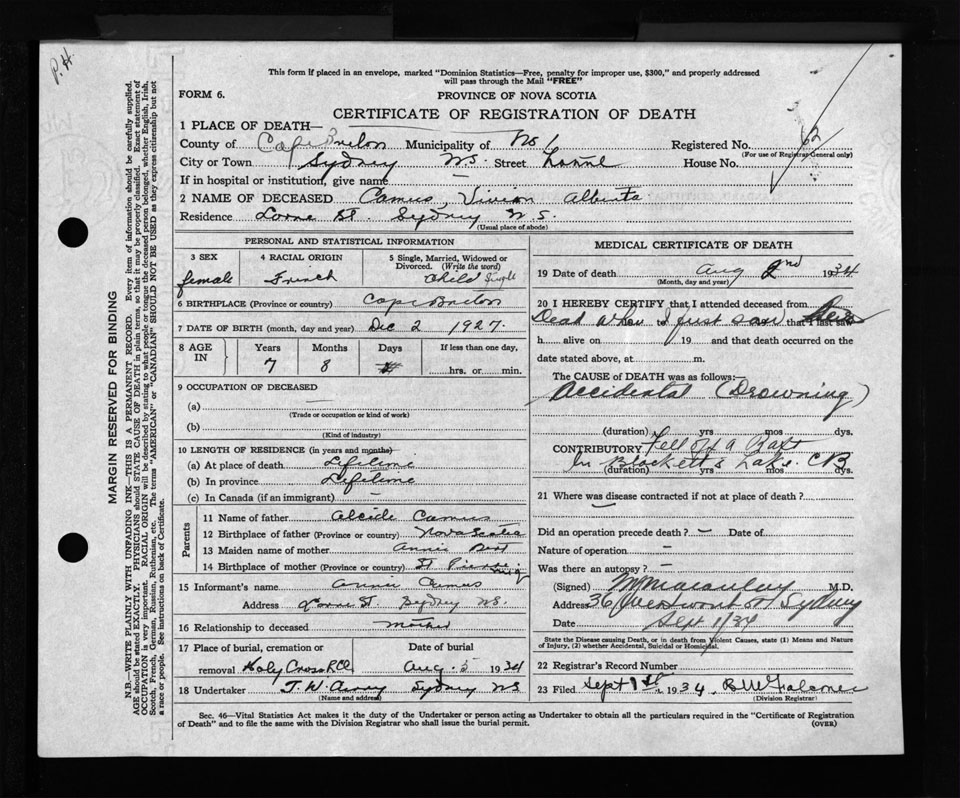 P.H.
This form if placed in an envelope, marked "Dominion Statistics—Free, penalty for improper use, $300," and properly addressed
will pass through the Mail "FREE"
FORM 6.
PROVINCE OF NOVA SCOTIA
CERTIFICATE OF REGISTRATION OF DEATH
1 PLACE OF DEATH—
County of Cape Breton Municipality of NS Registered No. 62
(For use of Registrar General only)
City or Town Sydney NS. Street Lorne House No.
If in hospital or institution, give name —
2 NAME OF DECEASED Camus, Vivian Alberta
Residence Lorne St. Sydney N.S.
(Usual place of abode)
MARGIN RESERVED FOR BINDING
N.B.—WRITE PLAINLY WITH UNFADING INK—THIS IS A PERMANENT RECORD. Every item of information should be carefully supplied.
AGE should be stated EXACTLY. PHYSICIANS should STATE CAUSE OF DEATH in plain terms, so that it may be properly classified. Exact statement of
OCCUPATION is very important. RACIAL ORIGIN will be described by stating to what people or tongue the deceased person belonged, whether English, Irish,
Scotch, French, German, Russian, Ruthenian, etc. The terms "AMERICAN" or "CANADIAN" SHOULD NOT BE USED as they express citizenship but not
a race or people. See instructions on back of Certificate.
PERSONAL AND STATISTICAL INFORMATION
3 SEX 4 RACIAL ORIGIN 5 Single, Married, Widowed or
Divorced. (Write the word)
female French Child Single
6 BIRTHPLACE (Province or country) Cape Breton
7 DATE OF BIRTH (month, day and year) Dec 2 1927.
8 AGE IN Years Months Days If less than one day,
7 8 hrs. or min.
9 OCCUPATION OF DECEASED
(a) —
(Trade or occupation or kind of work)
(b)
(Kind of industry)
10 LENGTH OF RESIDENCE (in years and months)
(a) At place of death Lifetime
(b) In province Lifetime
(c) In Canada (if an immigrant) —
Parents
11 Name of father Alcide Camus
12 Birthplace of father (Province or country) Nova Scotia
13 Maiden name of mother Annie
14 Birthplace of mother (Province or country) St Pierre
15 Informant's name Annie Camus
Address Lorne St. Sydney NS.
16 Relationship to deceased Mother
17 Place of burial, cremation or Date of burial
removal Holy Cross R.C. Aug. 5 1934
18 Undertaker T. W. Sydney NS
(Name and address)
MEDICAL CERTIFICATE OF DEATH
19 Date of death Aug 2nd 1934
(Month, day and year)
20 I HEREBY CERTIFY that I attended deceased from
Dead when I first saw that I last saw
h alive on 19 and that death occurred on the
date stated above, at m.
The CAUSE of DEATH was as follows:—
Accidental (Drowning)
(duration) yrs mos dys.
CONTRIBUTORY Fell off a Raft
in Blacketts Lake. CB
(duration) yrs mos dys.
21 Where was disease contracted if not at place of death?
Did an operation precede death? — Date of
Nature of operation —
Was there an autopsy? —
(Signed) Macaulay M.D.
Address 36 Sydney
Date Sept 1/34
State the Disease causing Death, or in death from Violent Causes, state (1) Means and Nature
of Injury, (2) whether Accidental, Suicidal or Homicidal.
22 Registrar's Record Number
23 Filed Sept 1st, 1934.
(Division Registrar)
Sec. 46—Vital Statistics Act makes it the duty of the Undertaker or person acting as Undertaker to obtain all the particulars required in the "Certificate of Registration
of Death" and to file the same with the Division Registrar who shall issue the burial permit.
(OVER)